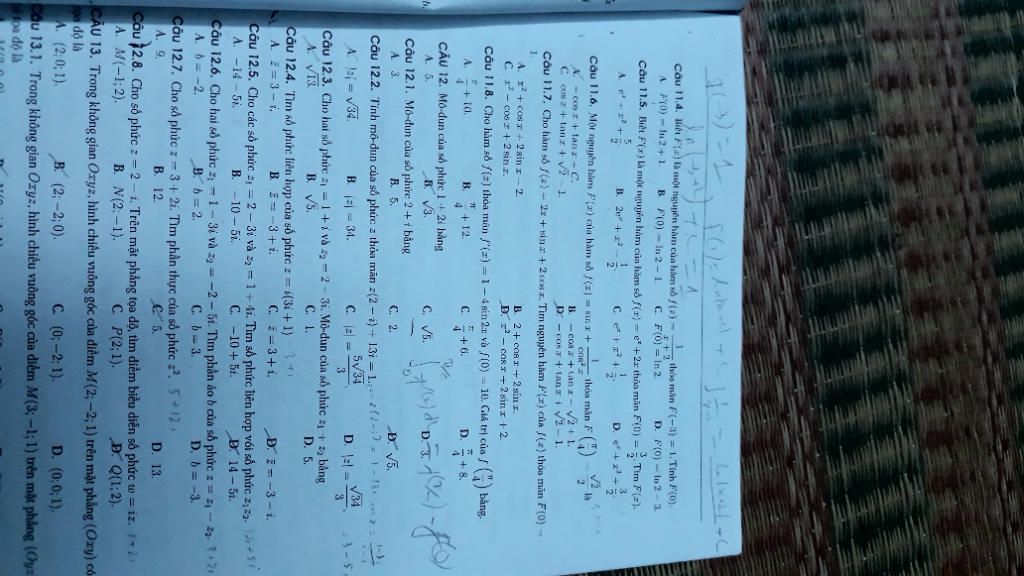 F(-3) = 1
Câu 11.4. Biết F(x) là một nguyên hàm của hàm số f(x) = 1/(x + 2) thỏa mãn F(−3) = 1. Tính F(0).
A. F(0) = ln 2 + 1. B. F(0) = ln 2 − 1. C. F(0) = ln 2. D. F(0) = ln 2 − 3.
Câu 11.5. Biết F(x) là một nguyên hàm của hàm số f(x) = e^x + 2x thỏa mãn F(0) = 3/2. Tìm F(x).
A. e^x + x² + 5/2. B. 2e^x + x² − 1/2. C. e^x + x² + 1/2. D. e^x + x² + 3/2.
Câu 11.6. Một nguyên hàm F(x) của hàm số f(x) = sin x + 1/cos² x thỏa mãn F(π/4) = √2/2 là
A. − cos x + tan x + C. B. − cos x + tan x − √2 + 1.
C. cos x + tan x + √2 − 1. D. − cos x + tan x + √2 − 1.
Câu 11.7. Cho hàm số f(x) = 2x + sin x + 2 cos x. Tìm nguyên hàm F(x) của f(x) thỏa mãn F(0) =
1.
A. x² + cos x + 2 sin x − 2. B. 2 + cos x + 2 sin x.
C. x² − cos x + 2 sin x. D. x² − cos x + 2 sin x + 2
Câu 11.8. Cho hàm số f(x) thỏa mãn f′(x) = 1 − 4 sin 2x và f(0) = 10. Giá trị của f(π/4) bằng.
A. π/4 + 10. B. π/4 + 12. C. π/4 + 6. D. π/4 + 8.
CÂU 12. Mô-đun của số phức 1 − 2i bằng
A. 5. B. √3. C. √5. D. 3.
Câu 12.1. Mô-đun của số phức 2 + i bằng
A. 3. B. 5. C. 2. D. √5.
Câu 12.2. Tính mô-đun của số phức z thỏa mãn z(2 − i) + 13i = 1.
A. |z| = √34. B. |z| = 34. C. |z| = 5√34/3. D. |z| = √34/3.
Câu 12.3. Cho hai số phức z₁ = 1 + i và z₂ = 2 − 3i. Mô-đun của số phức z₁ + z₂ bằng
A. √13. B. √5. C. 1. D. 5.
Câu 12.4. Tìm số phức liên hợp của số phức z = i(3i + 1)
A. z̄ = 3 − i. B. z̄ = −3 + i. C. z̄ = 3 + i. D. z̄ = −3 − i.
Câu 12.5. Cho các số phức z₁ = 2 − 3i và z₂ = 1 + 4i. Tìm số phức liên hợp với số phức z₁z₂.
A. −14 − 5i. B. −10 − 5i. C. −10 + 5i. D. 14 − 5i.
Câu 12.6. Cho hai số phức z₁ = 1 − 3i và z₂ = −2 − 5i. Tìm phần ảo b của số phức z = z₁ − z₂.
A. b = −2. B. b = 2. C. b = 3. D. b = −3.
Câu 12.7. Cho số phức z = 3 + 2i. Tìm phần thực của số phức z². 5 + 12i
A. 9. B. 12. C. 5. D. 13.
Câu 12.8. Cho số phức z = 2 − i. Trên mặt phẳng tọa độ, tìm điểm biểu diễn số phức w = iz.
A. M(−1; 2). B. N(2; −1). C. P(2; 1). D. Q(1; 2).
CÂU 13. Trong không gian Oxyz, hình chiếu vuông góc của điểm M(2; −2; 1) trên mặt phẳng (Oxy) có
tọa độ là
A. (2; 0; 1). B. (2; −2; 0). C. (0; −2; 1). D. (0; 0; 1).
Câu 13.1. Trong không gian Oxyz, hình chiếu vuông góc của điểm M(3; −1; 1) trên mặt phẳng (Oyz
tọa độ là